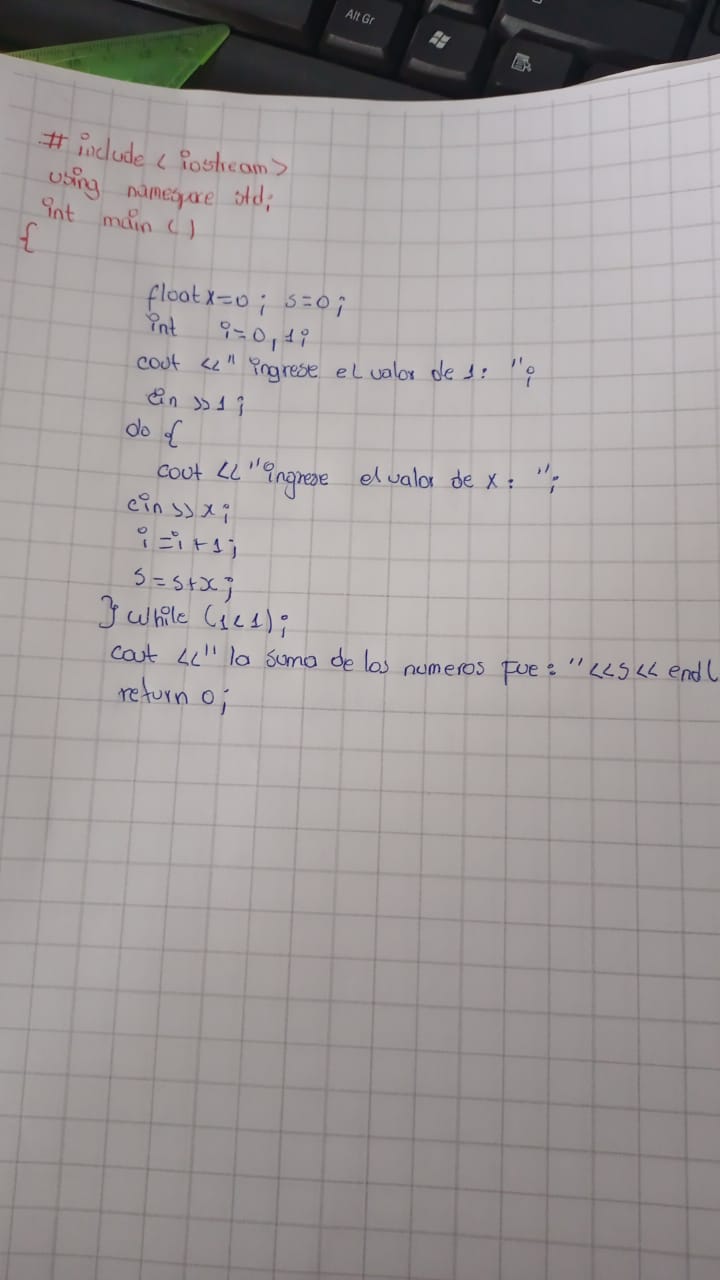 Alt Gr
# include < iostream>
using namespace std;
int main ( )
{
float x=0 ; s=0 ;
int i=0, 1;
cout <<" ingrese el valor de 1: ";
cin >>1 ;
do {
cout <<"ingrese el valor de x : ";
cin >> x;
i =i + 1;
s = s+x;
} while (1<1);
cout <<" la suma de los numeros fue : "<<s<< endl
return 0;